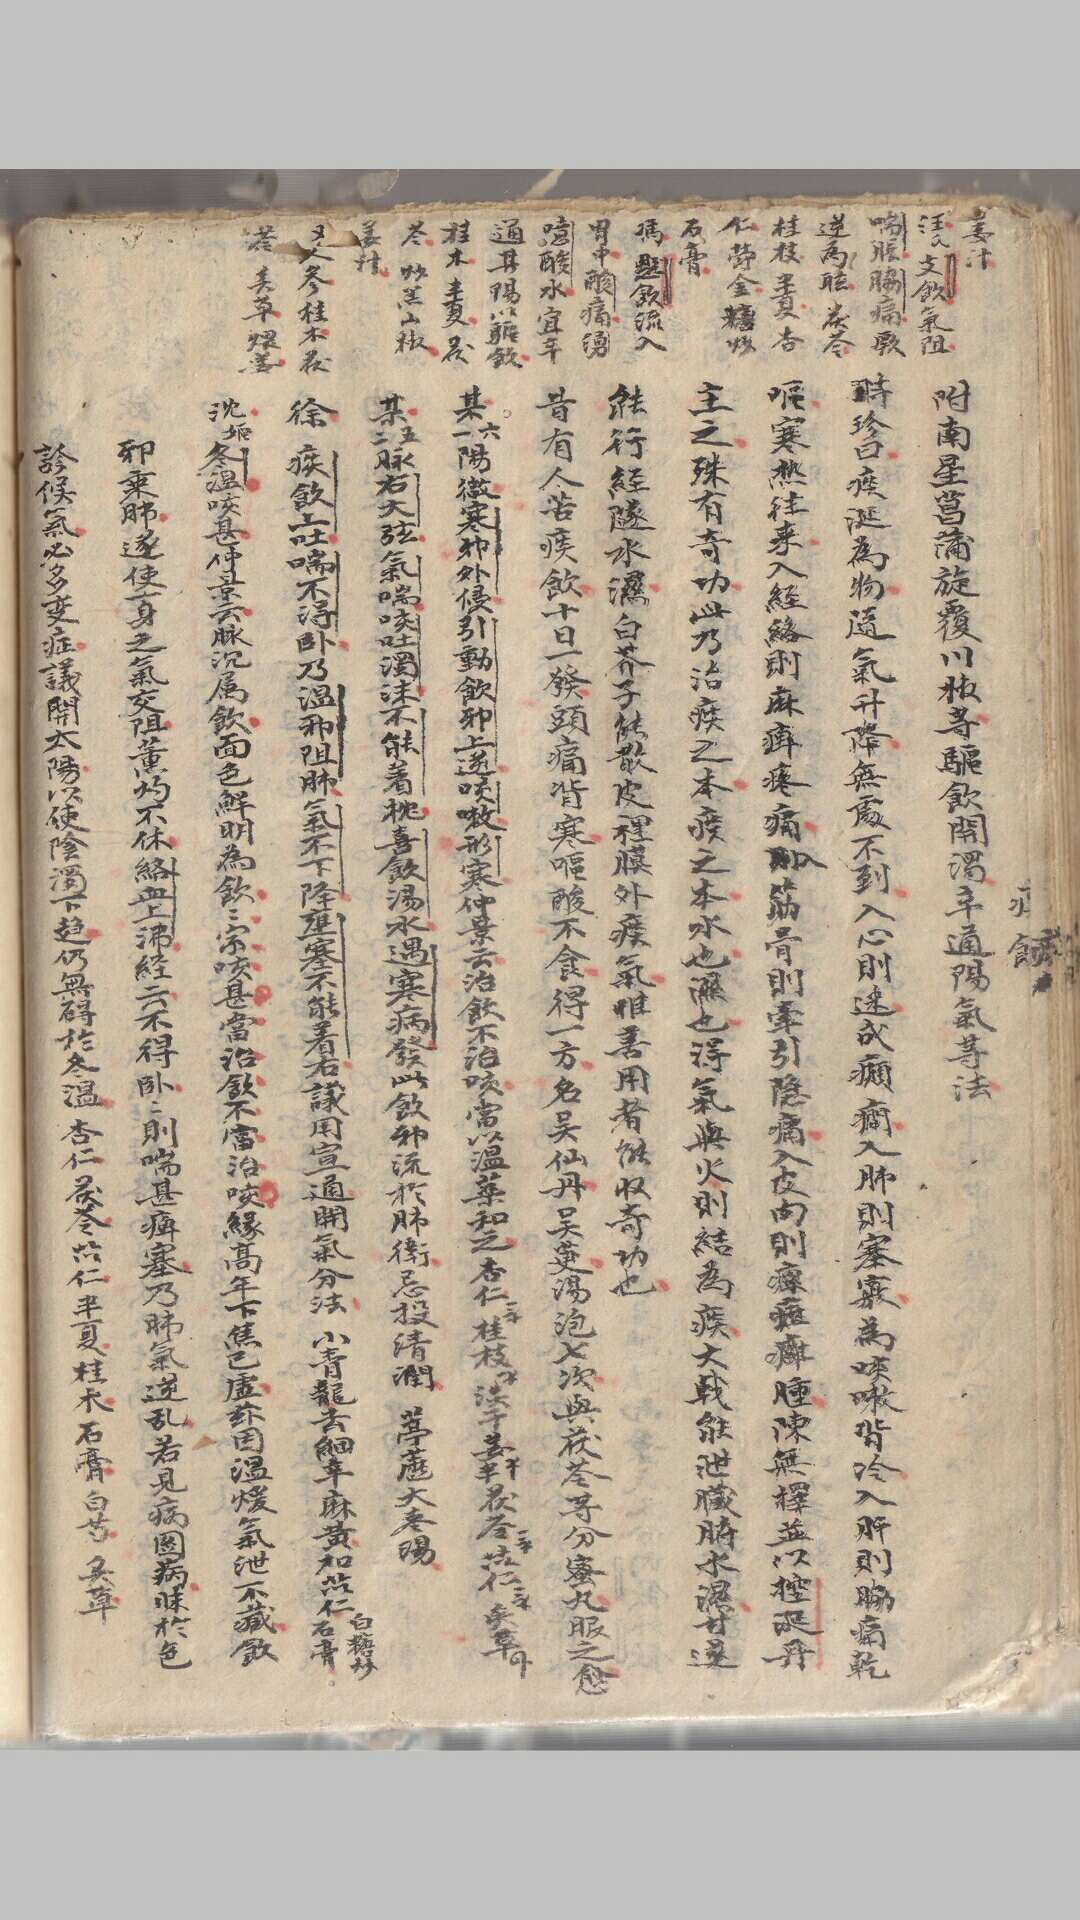 姜汁
汪氏 支飲氣阻
喘脹脇痛厥
逆為眩 茯苓
桂枝 半夏 杏
仁 鬱金 糖炒
石膏
馮 懸飲流入
胃中酸痛湧
噫酸水宜辛
通其陽以驅飲
桂木 半夏 茯
苓 炒黑川椒
姜汁
又 人參 桂木 茯
苓 炙草 煨姜
附南星菖蒲旋覆川椒等驅飲開濁辛通陽氣等法
時珍曰痰涎為物隨氣升降無處不到入心則迷成癲癇入肺則塞竅為咳嗽背冷入肝則脇痛乾
嘔寒熱往來入經絡則麻痺疼痛入筋骨則牽引隱痛入皮肉則瘰癧癰腫陳無擇並以控涎丹
主之殊有奇功此乃治痰之本痰之本水也濕也得氣與火則結為痰大戟能泄臟腑水濕甘遂
能行經隧水濕白芥子能散皮裡膜外痰氣惟善用者能收奇功也
昔有人苦痰飲十日一發頭痛背寒嘔酸不食得一方名吳仙丹吳萸湯泡七次與茯苓等分蜜丸服之愈
某 六一 陽微寒邪外侵引動飲邪上逆咳嗽形寒仲景云治飲不治咳當以溫藥和之杏仁 桂枝 淡干姜 茯苓 苡仁 炙草
某 五二 脉右大弦氣喘咳吐濁沫不能着枕喜飲湯水遇寒病發此飲邪流於肺衛忌投清潤 葶藶大棗湯
徐 痰飲上吐喘不得卧乃溫邪阻肺氣不下降壅塞不能着右議用宣通開氣分法 小青龍去細辛麻黃加苡仁石膏 白糖炒
沈妪 冬溫咳甚仲景云脉沉屬飲面色鮮明為飲飲家咳甚當治飲不當治咳緣高年下焦已虛茲因溫煖氣泄不藏飲
邪乘肺遂使一身之氣交阻薰灼不休絡血上沸經云不得卧卧則喘甚痺塞乃肺氣逆乱若見病圖病昧於色
診候氣必多變症議開太陽以使陰濁下趋仍無碍於冬溫 杏仁 茯苓 苡仁 半夏 桂木 石膏 白芍 炙草